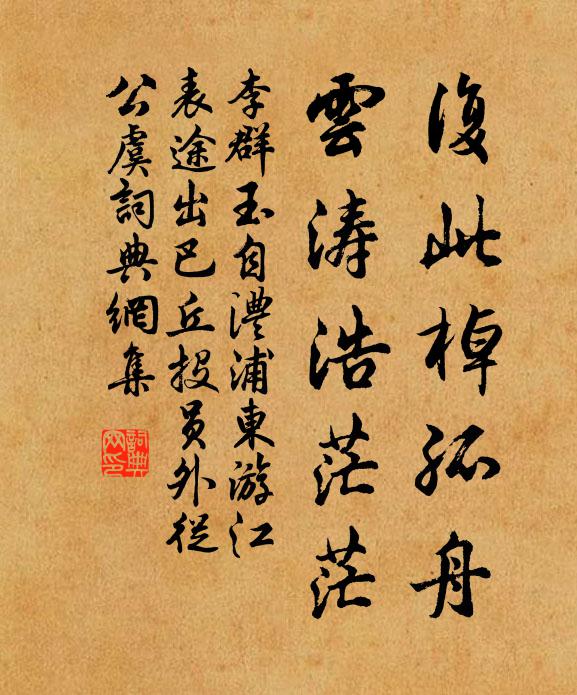 復此棹孤舟
雲濤浩茫茫
李群玉自澧浦東游江
表途出巴丘投员外從
公虞詞典網集
詞典
网印